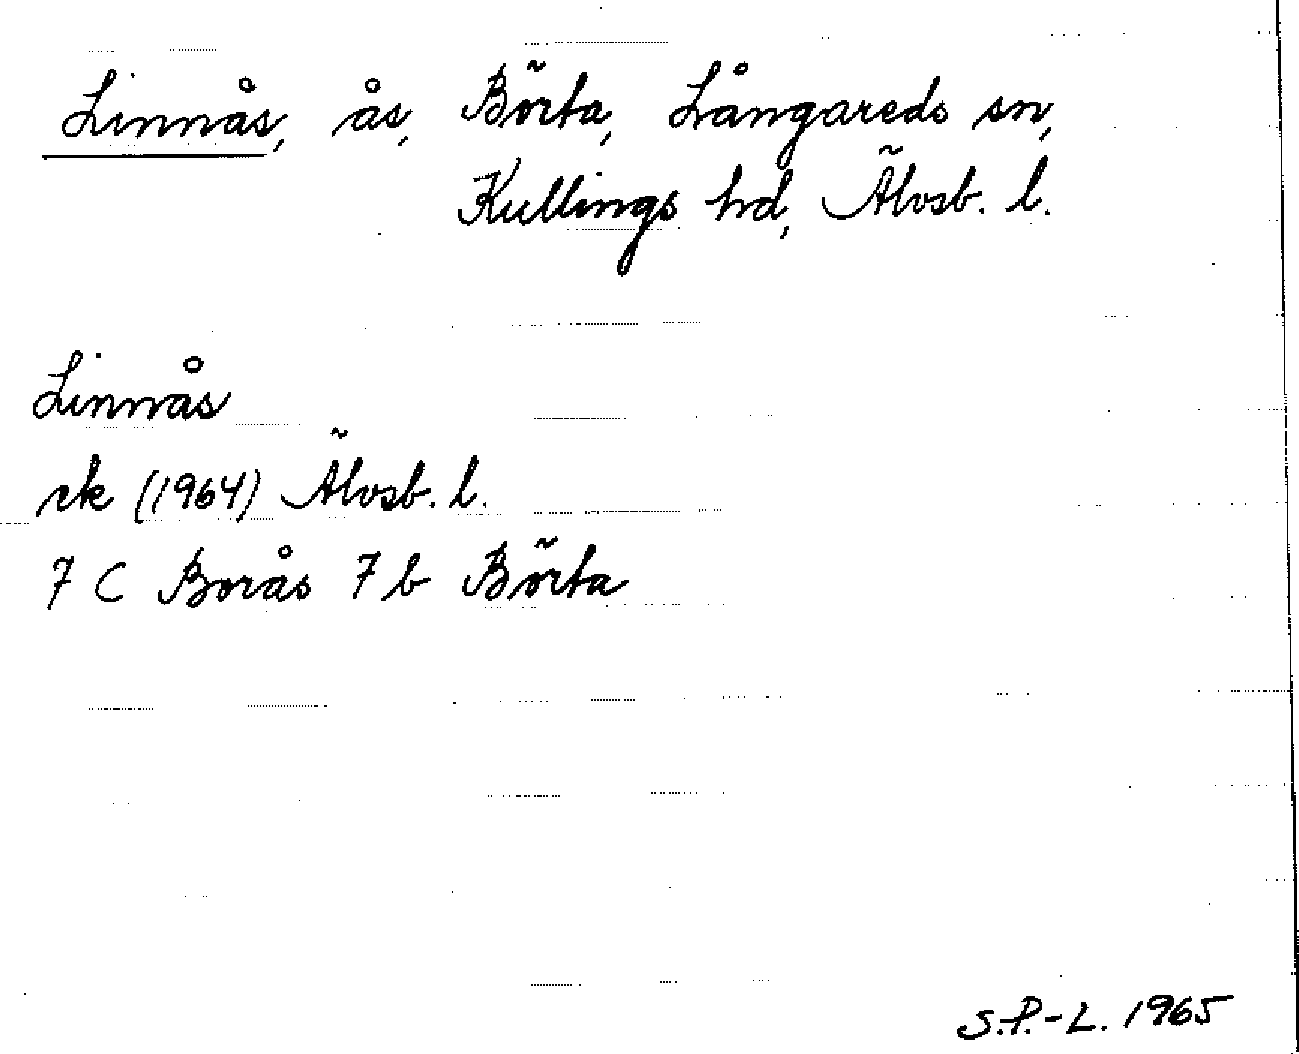 Linnås, ås, Börta, Långareds sn,
Kullings hd, Älvsb. l.
Linnås
ek (1964) Älvsb. l.
7 C Borås 7 b Börta
S.P.-L. 1965